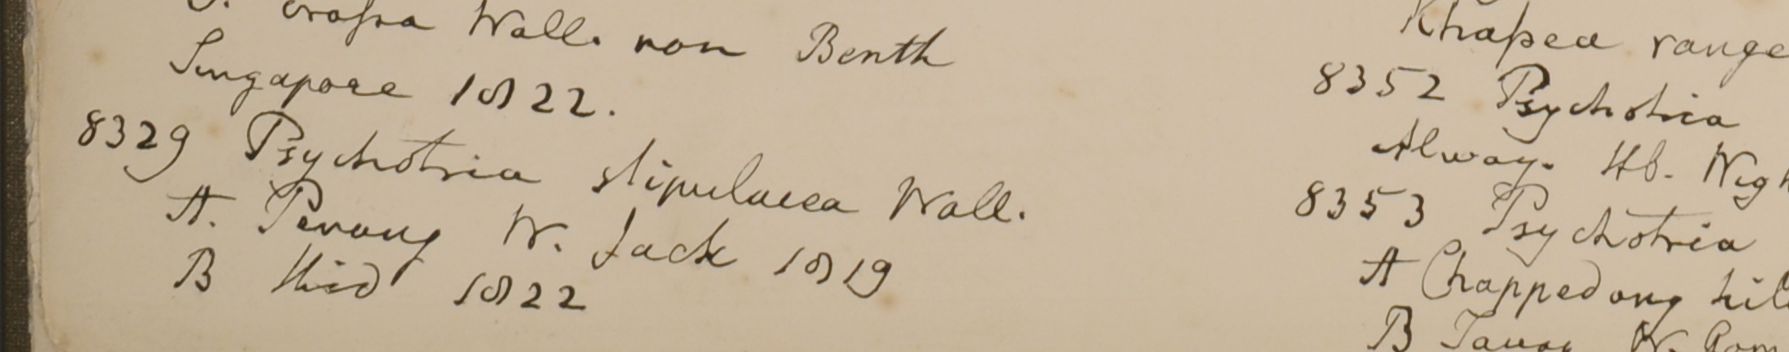 crassa Wall. non Benth
Singapore 1822.
8329 Psychotria stipulacea Wall.
A. Penang W. Jack 1819
B Ibid 1822
Khasea range
8352 Psychotria
Alway. Hb. Wigh
8353 Psychotria
A Chappedong hil
B Tavoy W. Gom